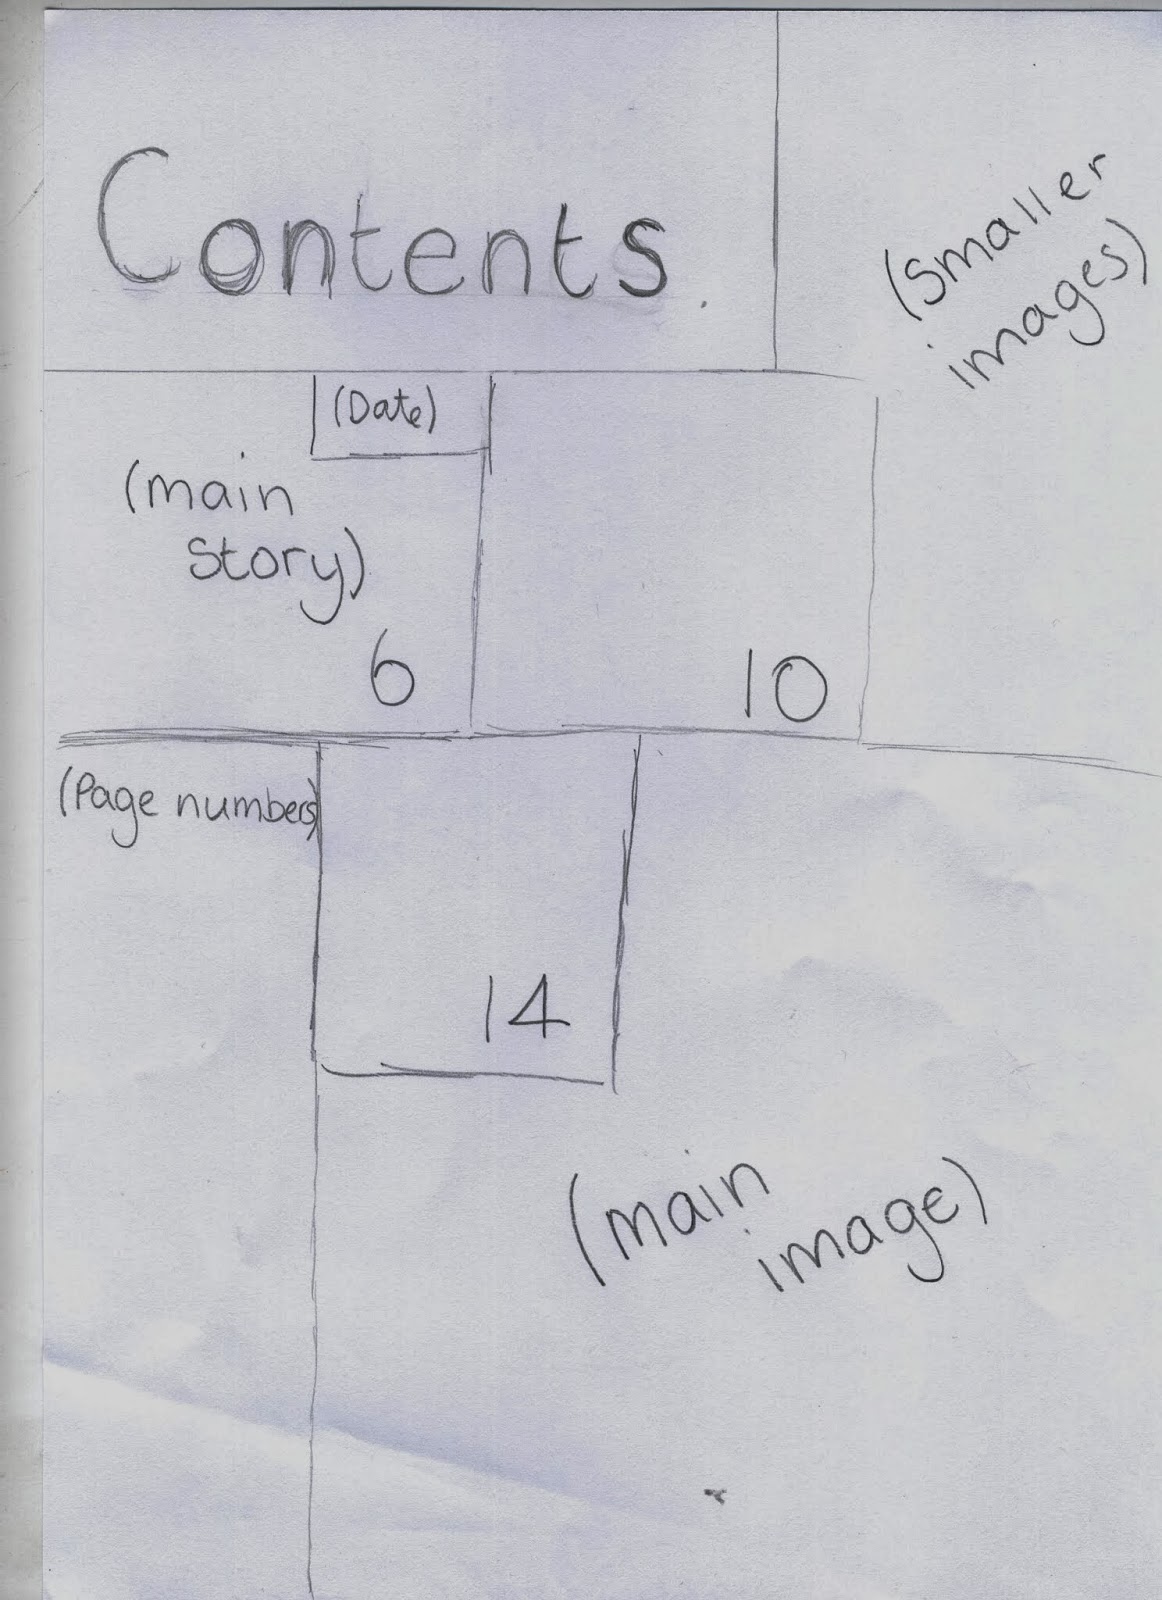 Contents
(Smaller
images)
(Date)
(main
story)
6
10
(Page numbers)
14
(main
image)